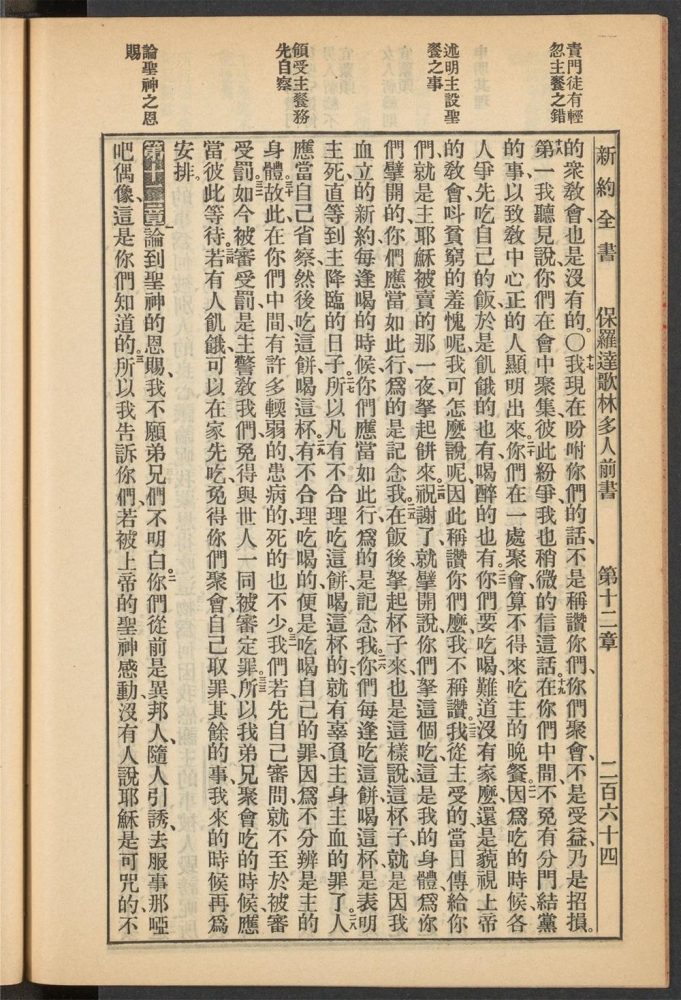 責門徒有輕
忽主餐之錯
述明主設聖
餐之事
領受主餐務
先自察
論聖神之恩
賜
新約全書 保羅達歌林多人前書 第十二章 二百六十四
的衆教會也是沒有的。〇十七我現在吩咐你們的話、不是稱讚你們、你們聚會不是受益、乃是招損。
十八第一我聽見說、你們在會中聚集、彼此紛爭、我也稍微的信這話。十九在你們中間不免有分門結黨
的事、以致教中心正的人顯明出來。二十你們在一處聚會、算不得來吃主的晚餐、二一因爲吃的時候、各
人爭先吃自己的飯、於是飢餓的也有、喝醉的也有。二二你們要吃喝、難道沒有家麽、還是藐視上帝
的教會、呌貧窮的羞愧呢、我可怎麽說呢、因此稱讚你們麽、我不稱讚。二三我從主受的、當日傳給你
們、就是主耶穌被賣的那一夜、拏起餅來、二四祝謝了、就擘開、說、你們拏這個吃、這是我的身體、爲你
們擘開的、你們應當如此行、爲的是記念我。二五在飯後拏起杯子來、也是這樣說、這杯子、就是因我
血立的新約、每逢喝的時候、你們應當如此行、爲的是記念我。二六你們每逢吃這餅、喝這杯、是表明
主死、直等到主降臨的日子。二七所以凡有不合理吃這餅、喝這杯的、就有辜負主身主血的罪了。二八人
應當自己省察、然後吃這餅、喝這杯。二九有不合理吃喝的、便是吃喝自己的罪、因爲不分辨是主的
身體。三十故此在你們中間有許多輭弱的、患病的、死的也不少。三一我們若先自己審問、就不至於被審
受罰。三二如今被審受罰、是主警教我們、免得與世人一同被審定罪。三三所以我弟兄聚會吃的時候、應
當彼此等待。三四若有人飢餓、可以在家先吃、免得你們聚會、自己取罪、其餘的事、我來的時候再爲
安排。
第十二章一論到聖神的恩賜、我不願弟兄們不明白。二你們從前是異邦人、隨人引誘、去服事那啞
吧偶像、這是你們知道的。三所以我告訴你們、若被上帝的聖神感動、沒有人說耶穌是可咒的、不